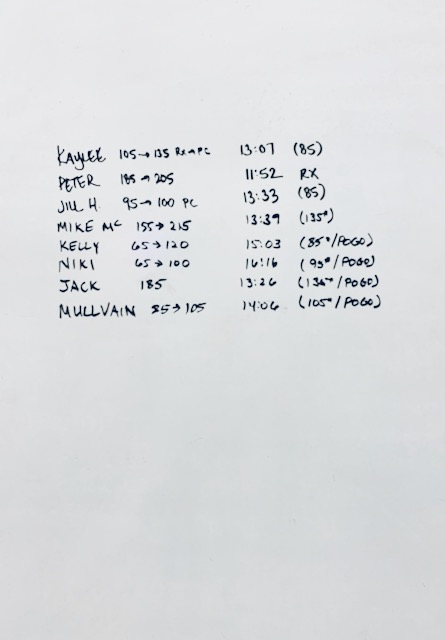 KAYLEE 105→135 RX→PC 13:07 (85)
PETER 185→205 11:52 RX
JILL H. 95→100 PC 13:33 (85)
MIKE MC 155→215 13:39 (135#)
KELLY 65→120 15:03 (85#/POGO)
NIKI 65→100 16:16 (95#/POGO)
JACK 185 13:26 (135#/POGO)
MULLVAIN 85→105 14:06 (105#/POGO)